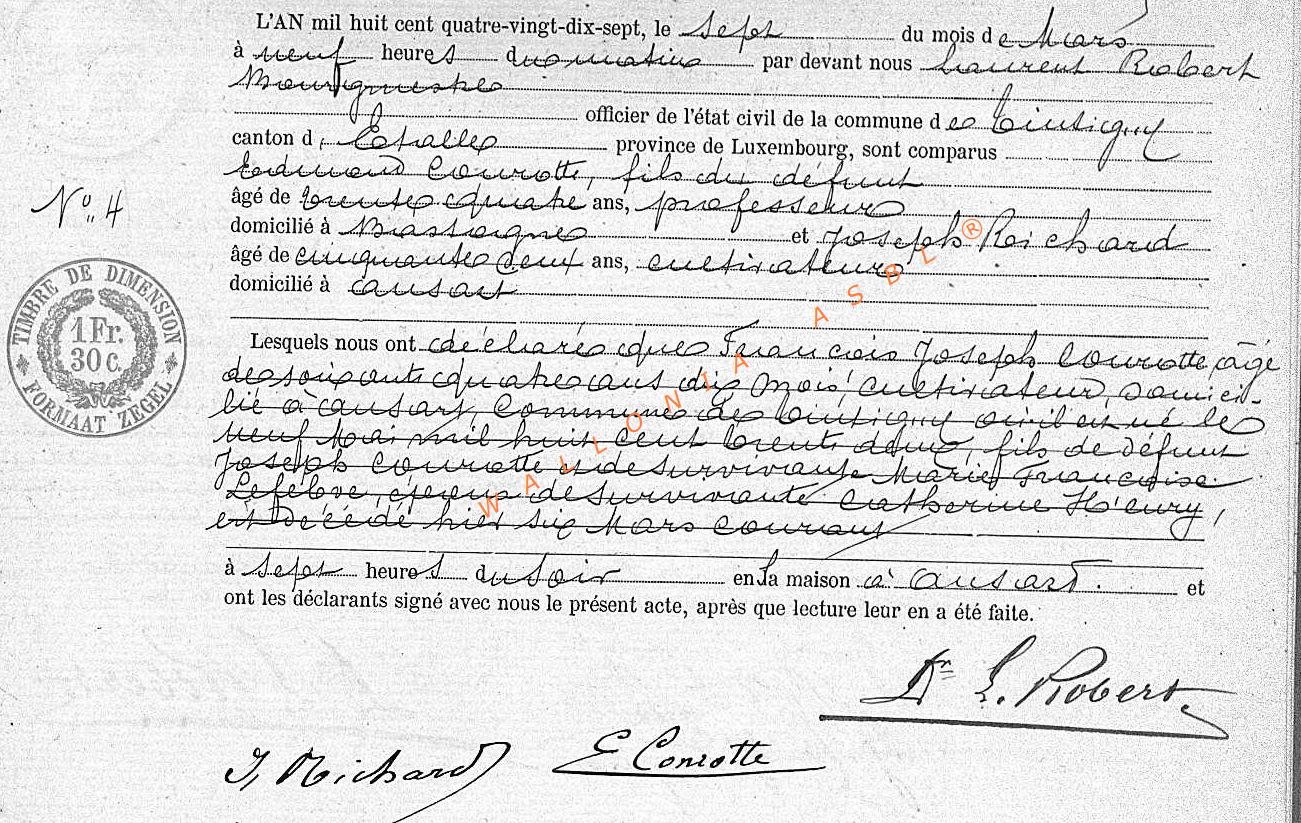 L'AN mil huit cent quatre-vingt-dix-sept, le sept du mois de Mars
à neuf heures du matin par devant nous Laurent Robert
Bourgmestre
officier de l'état civil de la commune de Tintigny
canton d'Etalle province de Luxembourg, sont comparus
Edmond Conrotte, fils du défunt
âgé de trente quatre ans, professeur
domicilié à Bastogne et Joseph Richard
N° 4
âgé de cinquante deux ans, cultivateur
domicilié à Ansart
TIMBRE DE DIMENSION
1 Fr.
30 c.
FORMAAT ZEGEL
Lesquels nous ont déclaré que François Joseph Conrotte âgé
de soixante quatre ans dix mois, cultivateur, domici-
lié à Ansart, commune de Tintigny où il est né le
neuf Mai mil huit cent trente deux, fils de défunt
Joseph Conrotte et de survivante Marie Françoise
Lefebvre, époux de survivante Catherine H'enry,
est décédé hier six Mars courant
à sept heures du soir en la maison à Ansart. et
ont les déclarants signé avec nous le présent acte, après que lecture leur en a été faite.
WALLONIA ASBL ®
Dr L. Robert
J, Richard E Conrotte